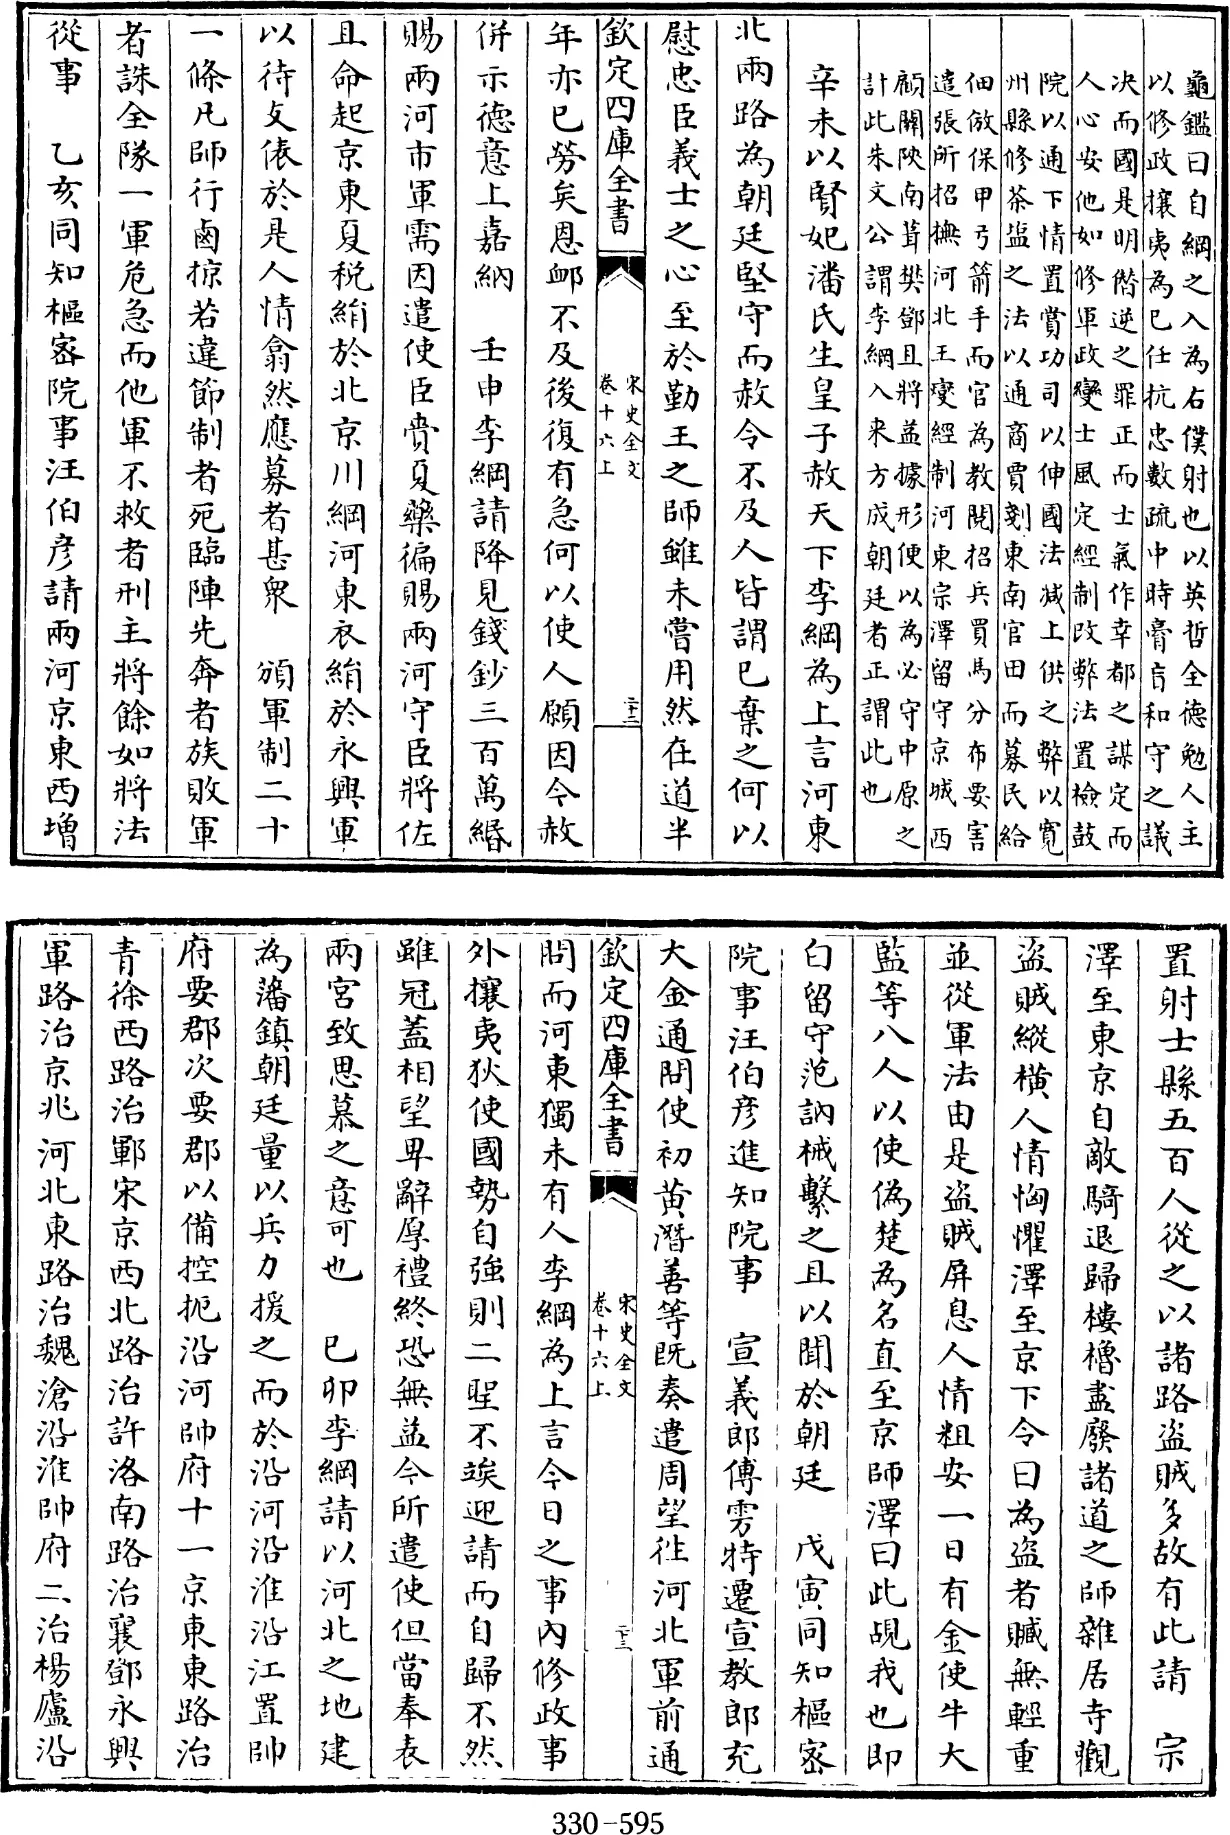 龜鑑曰自綱之入為右僕射也以英哲全德勉人主
以修政攘夷為己任抗忠數疏中時膏肓和守之議
決而國是明僭逆之罪正而士氣作幸都之謀定而
人心安他如修軍政變士風定經制改弊法置檢鼓
院以通下情置賞功司以伸國法減上供之弊以寛
州縣修茶鹽之法以通商賈剗東南官田而募民給
佃倣保甲弓箭手而官為教閱招兵買馬分布要害
遣張所招撫河北王𤫉經制河東宗澤留守京城西
顧關陝南葺樊鄧且將益據形便以為必守中原之
計此朱文公謂李綱入來方成朝廷者正謂此也
辛未以賢妃潘氏生皇子赦天下李綱為上言河東
北兩路為朝廷堅守而赦令不及人皆謂已棄之何以
慰忠臣義士之心至於勤王之師雖未嘗用然在道半
欽定四庫全書
宋史全文
卷十六上
二十三
年亦已勞矣恩䘏不及後復有急何以使人願因今赦
併示德意上嘉納 壬申李綱請降見錢鈔三百萬緡
賜兩河市軍需因遣使臣賫夏藥徧賜兩河守臣將佐
且命起京東夏税絹於北京川綱河東衣絹於永興軍
以待支俵於是人情翕然應募者甚衆 頒軍制二十
一條凡師行鹵掠若違節制者死臨陣先奔者族敗軍
者誅全隊一軍危急而他軍不救者刑主將餘如將法
從事 乙亥同知樞密院事汪伯彦請兩河京東西增
置射士縣五百人從之以諸路盜賊多故有此請 宗
澤至東京自敵騎退歸樓櫓盡廢諸道之師雜居寺觀
盜賊縱橫人情恟懼澤至京下令曰為盜者贓無輕重
並從軍法由是盜賊屏息人情粗安一日有金使牛大
監等八人以使偽楚為名直至京師澤曰此覘我也即
白留守范訥械繫之且以聞於朝廷 戊寅同知樞密
院事汪伯彦進知院事 宣義郎傅雱特遷宣教郎充
大金通問使初黄潛善等既奏遣周望徃河北軍前通
欽定四庫全書
宋史全文
卷十六上
二十三
問而河東獨未有人李綱為上言今日之事内修政事
外攘夷狄使國勢自強則二聖不竢迎請而自歸不然
雖冠蓋相望卑辭厚禮終恐無益今所遣使但當奉表
兩宮致思慕之意可也 己卯李綱請以河北之地建
為藩鎮朝廷量以兵力援之而於沿河沿淮沿江置帥
府要郡次要郡以備控扼沿河帥府十一京東東路治
青徐西路治鄆宋京西北路治許洛南路治襄鄧永興
軍路治京兆河北東路治魏滄沿淮帥府二治楊廬沿
330-595